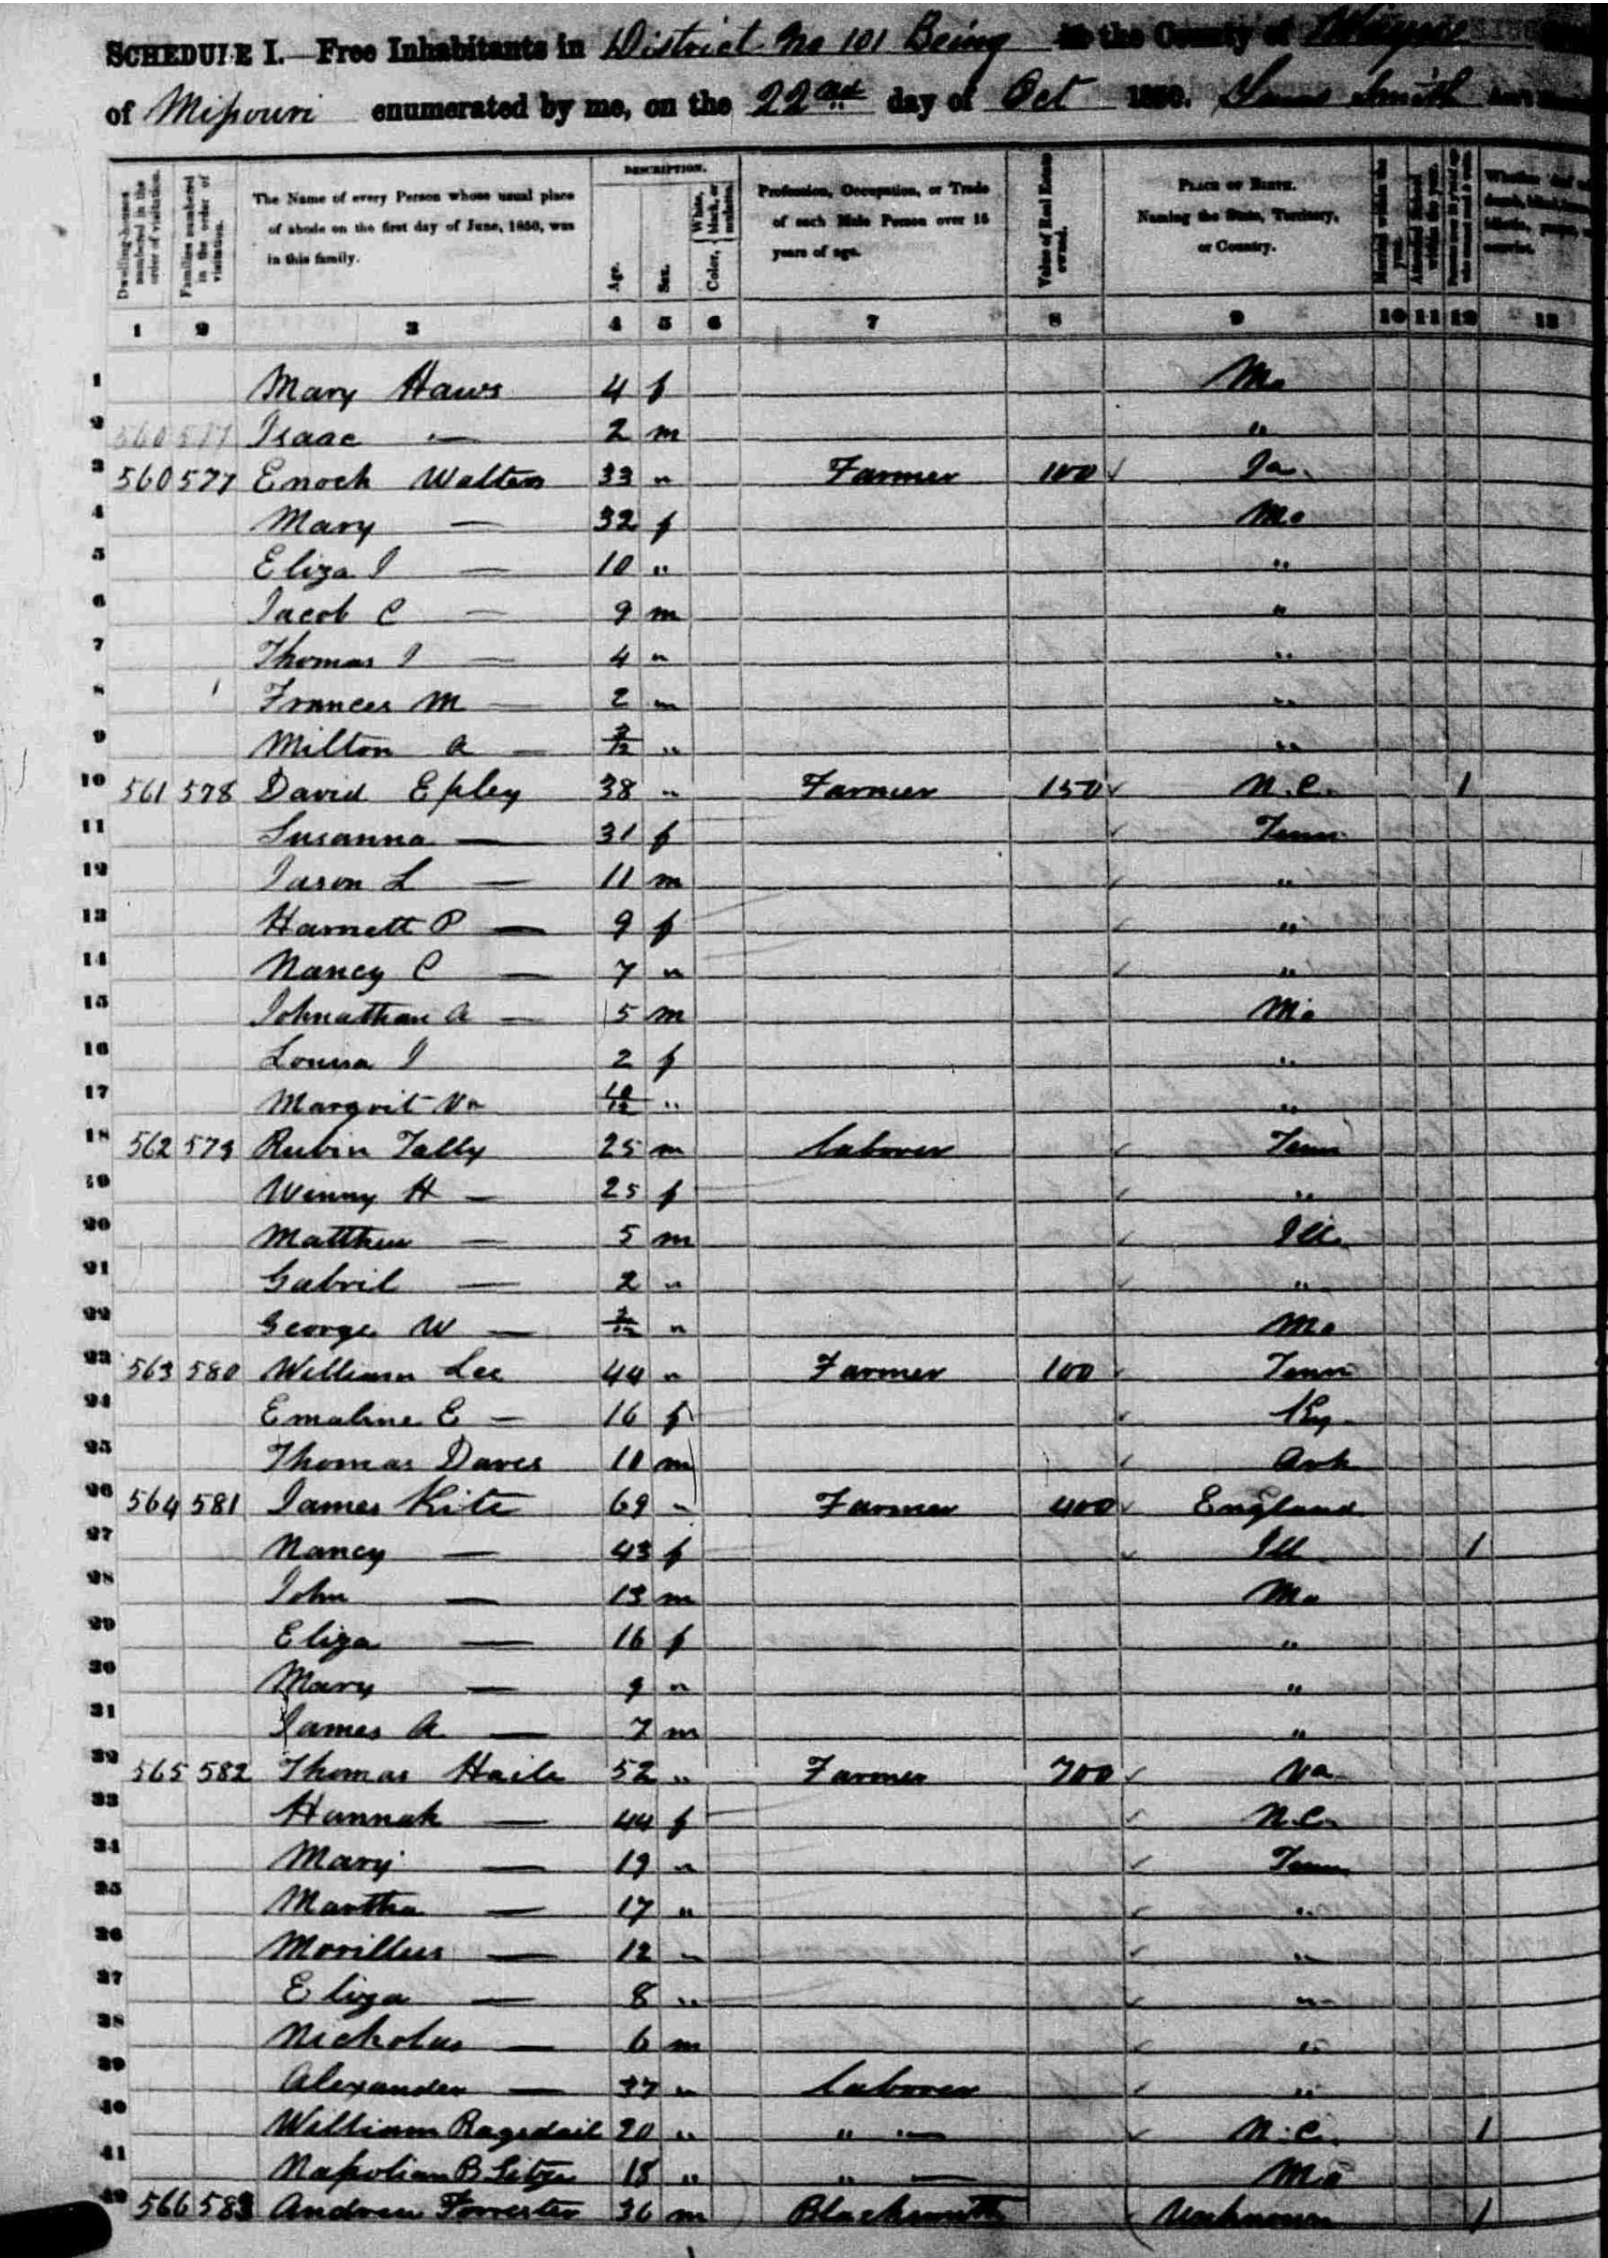 SCHEDULE I.—Free Inhabitants in District No 101 Being in the County of Wayne
of Missouri enumerated by me, on the 22nd day of Oct 1850. Smith
Dwelling-houses numbered in the order of visitation.
Families numbered in the order of visitation.
The Name of every Person whose usual place of abode on the first day of June, 1850, was in this family.
DESCRIPTION.
Age.
Sex.
Color, White, black, or mulatto.
Profession, Occupation, or Trade of each Male Person over 15 years of age.
Value of Real Estate owned.
PLACE OF BIRTH. Naming the State, Territory, or Country.
Married within the year.
Attended School within the year.
Persons over 20 y'rs of age who cannot read & write.
Whether deaf and dumb, blind,
1 2 3 4 5 6 7 8 9 10 11 12 13
1 Mary Haws 4 f Mo
2 560 577 Isaac — 2 m "
3 560 577 Enoch Walters 33 " Farmer 100 ✓
4 Mary — 32 f Mo
5 Eliza J — 10 " "
6 Jacob C — 9 m "
7 Thomas J — 4 " "
8 Frances M — 2 " "
9 Milton A — "  "
10 561 578 David Epley 38 " Farmer 150 ✓ N.C. 1
11 Susanna — 31 f ✓ Tenn
12 Jason L — 11 m ✓ "
13 Harriett P — 9 f ✓ "
14 Nancy C — 7 " ✓ "
15 Johnathan A — 5 m Mo
16 Louisa J 2 f "
17 Margrit 10/12 " "
18 562 579 Rubin Tally 25 m Laborer ✓ Tenn
19 Winny H — 25 f ✓ "
20 Matthew — 5 m ✓ Ill.
21 Gabril — 2 " ✓ "
22 George W — " Mo
23 563 580 William Lee 44 " Farmer 100 ✓ Tenn
24 Emaline E — 16 f ✓ Ky
25 Thomas Daves 10 m ✓ Ark
26 564 581 James Kite 69 " Farmer 400 ✓ England
27 Nancy — 43 f ✓ Ill 1
28 John — 13 m Mo
29 Eliza — 16 f "
30 Mary — 9 " "
31 James A — 7 m "
32 565 582 Thomas Haile 52 " Farmer 700 ✓ Va
33 Hannah — 44 f ✓ N.C.
34 Mary — 19 " ✓ Tenn
35 Martha — 17 " ✓ "
36 Morillus — 12 " ✓ "
37 Eliza — 8 " ✓ "
38 Nicholas — 6 m ✓ "
39 Alexander — 37 " Laborer ✓ "
40 William Ragsdail 20 " " — ✓ N.C. 1
41 Napolian B 18 " " — Mo
42 566 583 Andrew Forrester 36 m Blacksmith Unknown 1